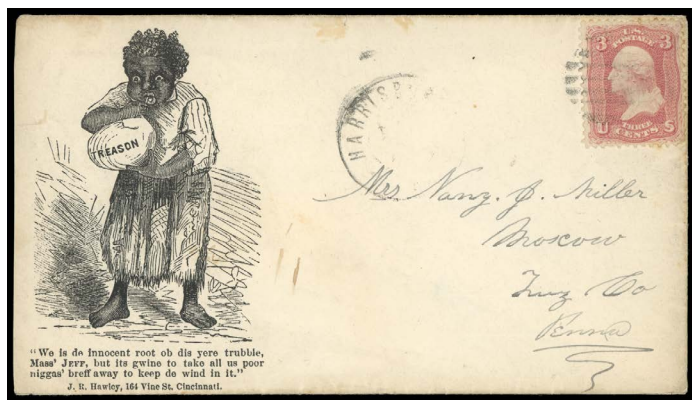 TREASON
"We is de innocent root ob dis yere trubble,
Mass' JEFF, but its gwine to take all us poor
niggas' breff away to keep de wind in it."
J. R. Hawley, 164 Vine St. Cincinnati.
HARRISB
3 U.S. 3
POSTAGE
THREE
U CENTS S
Mrs Nancy J. Miller
Moscow
Luz Co
Penna